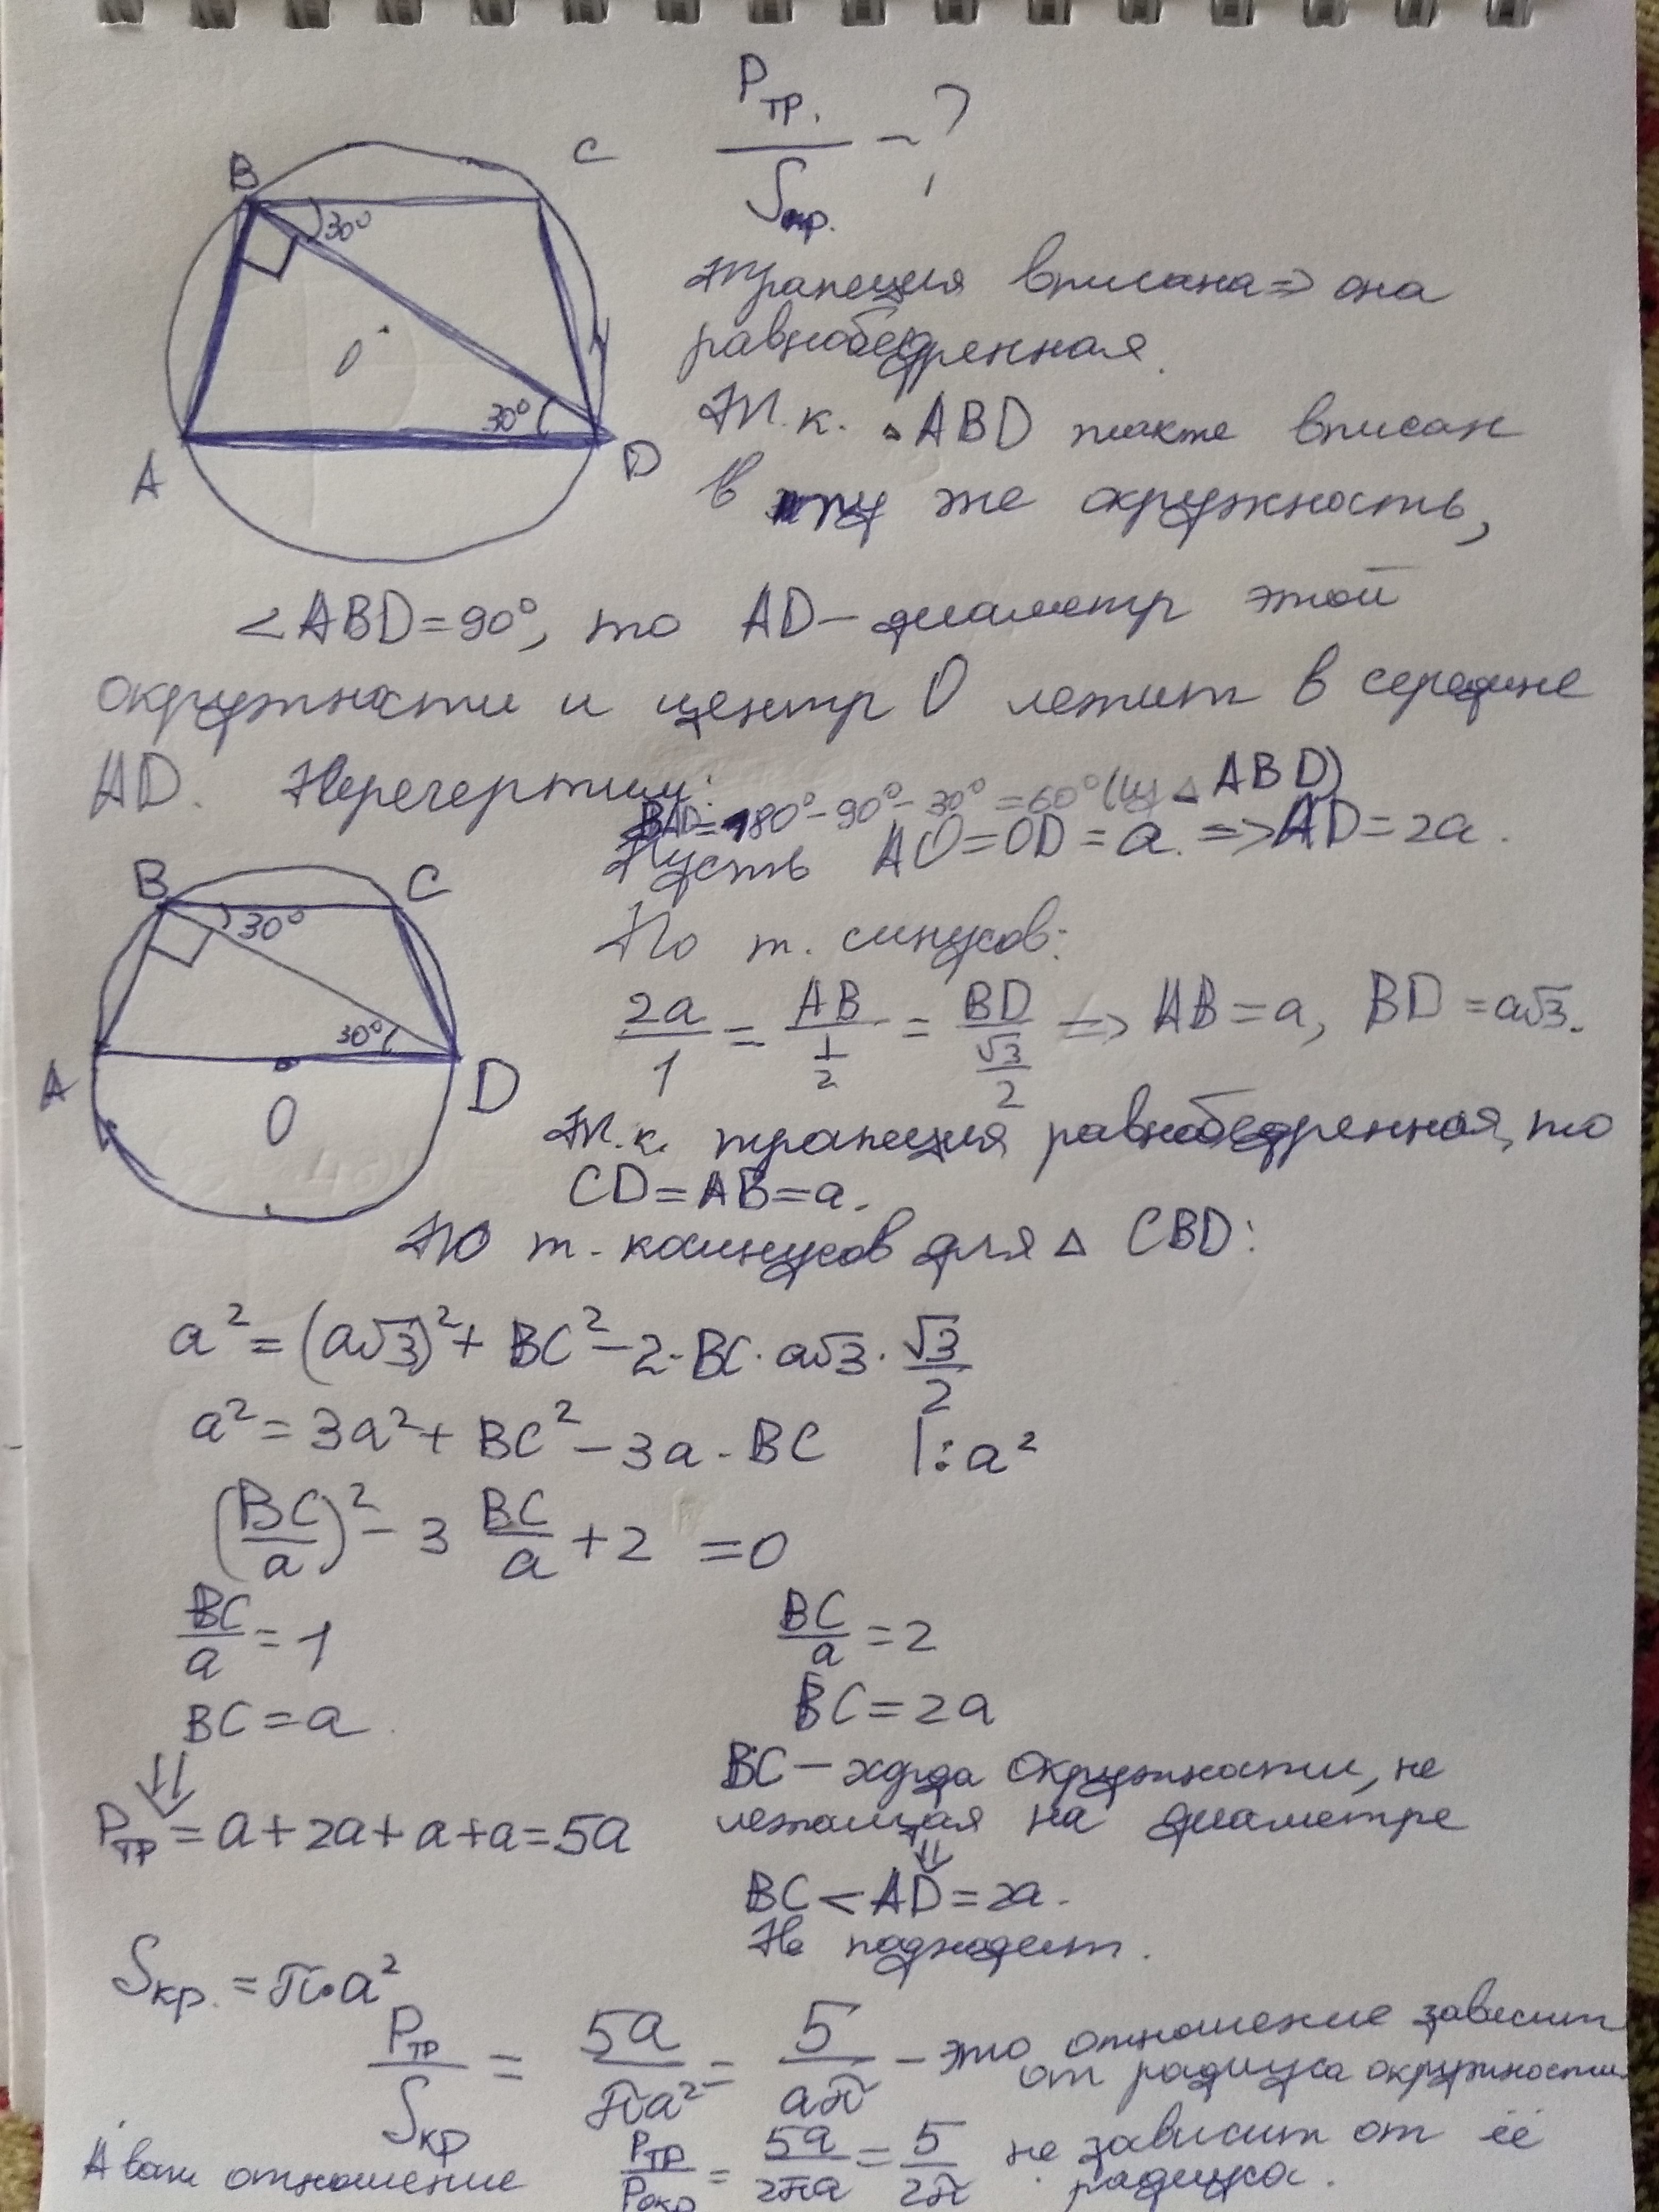 Pтр. / Sкр. - ?
B
C
30°
O
30°
A
D
трапеция вписана => она
равнобедренная.
Т.к. △ABD также вписан
в ту же окружность,
∠ABD=90°, то AD - диаметр этой
окружности и центр O лежит в середине
AD. Перечертим:
BAD = 180° - 90° - 30° = 60° (из △ABD)
Пусть AO=OD=a. => AD=2a.
B
C
30°
30°
A
D
O
По т. синусов:
2a/1 = AB/(1/2) = BD/(√3/2) => AB=a, BD=a√3.
Т.к. трапеция равнобедренная, то
CD=AB=a.
По т. косинусов для △ CBD:
a² = (a√3)² + BC² - 2·BC·a√3·√3/2
a² = 3a² + BC² - 3a·BC |:a²
(BC/a)² - 3 BC/a + 2 = 0
BC/a = 1
BC = a.
⇓
Pтр = a+2a+a+a=5a
BC/a = 2
BC = 2a
BC - хорда окружности, не
лежащая на диаметре
⇓
BC < AD = 2a.
Не подходит.
Sкр. = π·a²
Pтр/Sкр = 5a/πa² = 5/aπ - это отношение зависит
от радиуса окружности.
А вот отношение Pтр/Pокр = 5a/2πa = 5/2π не зависит от её
радиуса.